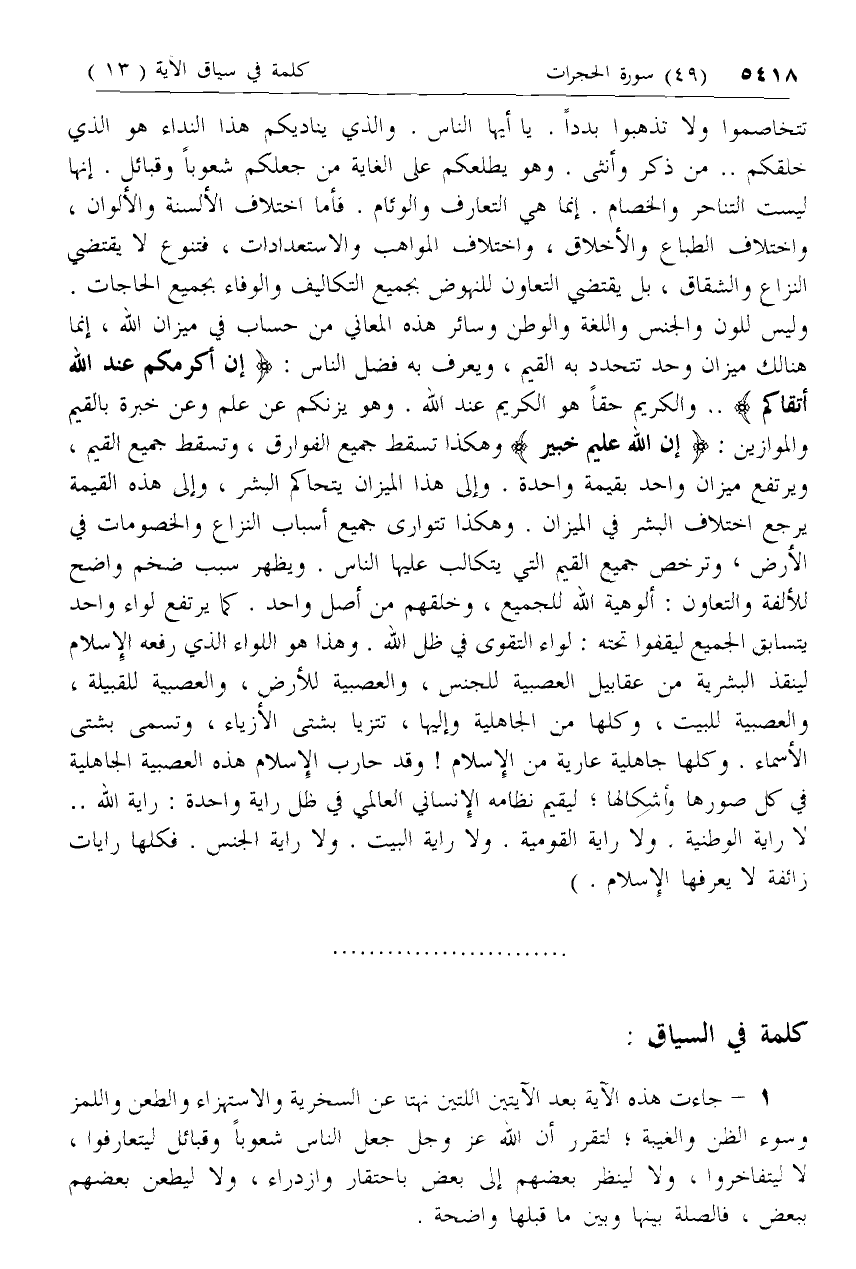 ٥٤١٨ (٤٩) سورة الحجرات كلمة في سياق الآية ( ١٣ )
تتخاصموا ولا تذهبوا بدداً . يا أيها الناس . والذي يناديكم هذا النداء هو الذي
خلقكم .. من ذكر وأنثى . وهو يطلعكم على الغاية من جعلكم شعوباً وقبائل . إنها
ليست التناحر والخصام . إنما هي التعارف والوئام . فأما اختلاف الألسنة والألوان ،
واختلاف الطباع والأخلاق ، واختلاف المواهب والاستعدادات ، فتنوع لا يقتضي
النزاع والشقاق ، بل يقتضي التعاون للنهوض بجميع التكاليف والوفاء بجميع الحاجات .
وليس للون والجنس واللغة والوطن وسائر هذه المعاني من حساب في ميزان الله ، إنما
هنالك ميزان وحد تتحدد به القيم ، ويعرف به فضل الناس : ﴿ إن أكرمكم عند الله
أتقاكم ﴾ .. والكريم حقاً هو الكريم عند الله . وهو يزنكم عن علم وعن خبرة بالقيم
والموازين : ﴿ إن الله عليم خبير ﴾ وهكذا تسقط جميع الفوارق ، وتسقط جميع القيم ،
ويرتفع ميزان واحد بقيمة واحدة . وإلى هذا الميزان يتحاكم البشر ، وإلى هذه القيمة
يرجع اختلاف البشر في الميزان . وهكذا تتوارى جميع أسباب النزاع والخصومات في
الأرض ، وترخص جميع القيم التي يتكالب عليها الناس . ويظهر سبب ضخم واضح
للألفة والتعاون : ألوهية الله للجميع ، وخلقهم من أصل واحد . كما يرتفع لواء واحد
يتسابق الجميع ليقفوا تحته : لواء التقوى في ظل الله . وهذا هو اللواء الذي رفعه الإسلام
لينقذ البشرية من عقابيل العصبية للجنس ، والعصبية للأرض ، والعصبية للقبيلة ،
والعصبية للبيت ، وكلها من الجاهلية وإليها ، تتزيا بشتى الأزياء ، وتسمى بشتى
الأسماء . وكلها جاهلية عارية من الإسلام ! وقد حارب الإسلام هذه العصبية الجاهلية
في كل صورها وأشكالها ؛ ليقيم نظامه الإنساني العالمي في ظل راية واحدة : راية الله ..
لا راية الوطنية . ولا راية القومية . ولا راية البيت . ولا راية الجنس . فكلها رايات
زائفة لا يعرفها الإسلام . )
..........................
كلمة في السياق :
١ – جاءت هذه الآية بعد الآيتين اللتين نهتا عن السخرية والاستهزاء والطعن واللمز
وسوء الظن والغيبة ؛ لتقرر أن الله عز وجل جعل الناس شعوباً وقبائل ليتعارفوا ،
لا ليتفاخروا ، ولا لينظر بعضهم إلى بعض باحتقار وازدراء ، ولا ليطعن بعضهم
ببعض ، فالصلة بينها وبين ما قبلها واضحة .